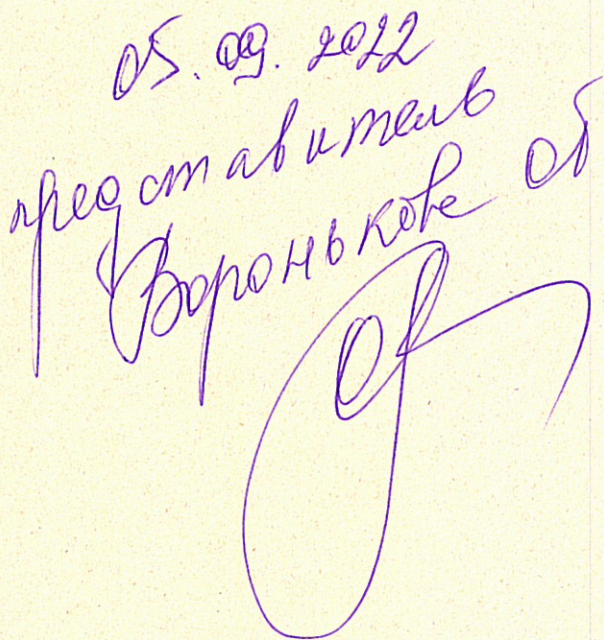 05.09.2022
представитель
Воронькове ОВ